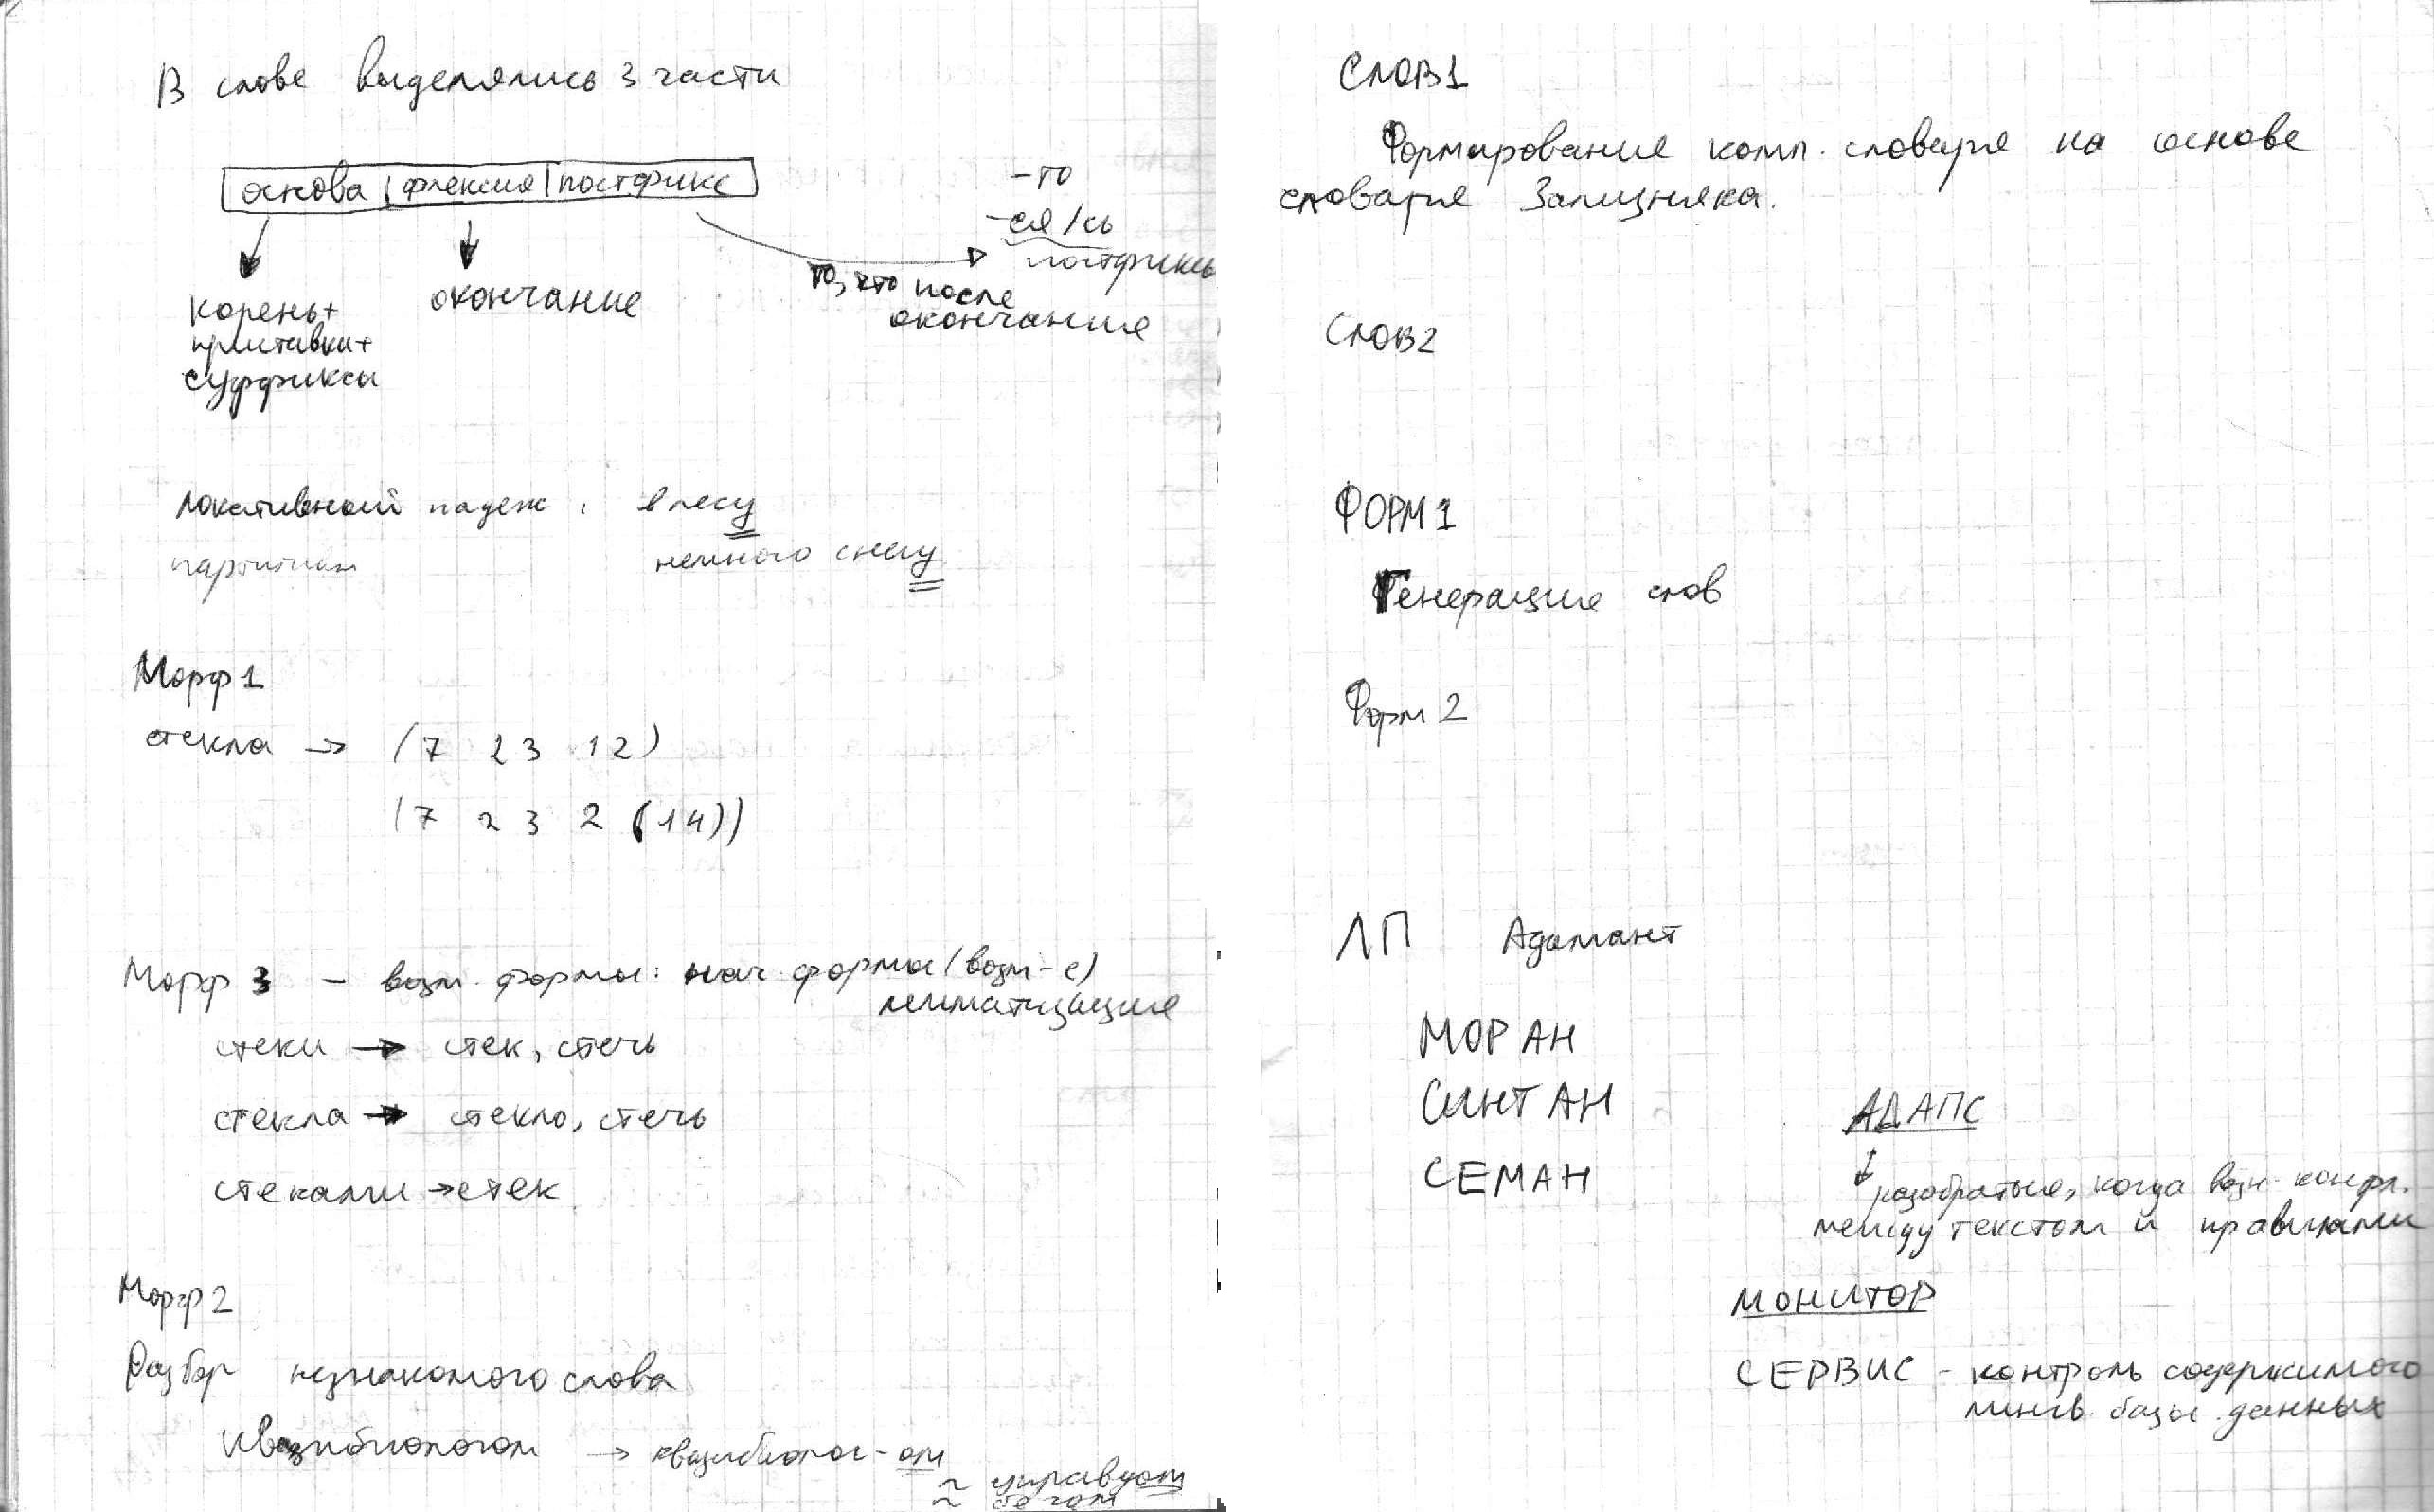 В слове выделялись 3 части
основа | флексия | постфикс
-то
-ся/сь
постфиксы
то, что после
окончания
корень+
приставки+
суффиксы
окончание
локативный падеж: в лесу
партитив немного снегу
Морф 1
стекла → (7 2 3 12)
(7 2 3 2 (14))
Морф 3 – возм. формы: нач. форма (возм-е)
лемматизация
стеки → стек, стечь
стекла → стекло, стечь
стеками → стек
Морф 2
Разбор незнакомого слова
квазибиологом → квазибиолог-ом
~ управдом
~
СЛОВ1
Формирование комп. словаря на основе
словаря Зализняка.
СЛОВ2
ФОРМ1
Генерация слов
Форм 2
ЛП Адамант
МОРАН
СИНТАН
СЕМАН
АДАПС
↓
разобраться, когда возн. конфл.
между текстом и правилами
МОНИТОР
СЕРВИС – контроль содержимого
лингв. базы данных